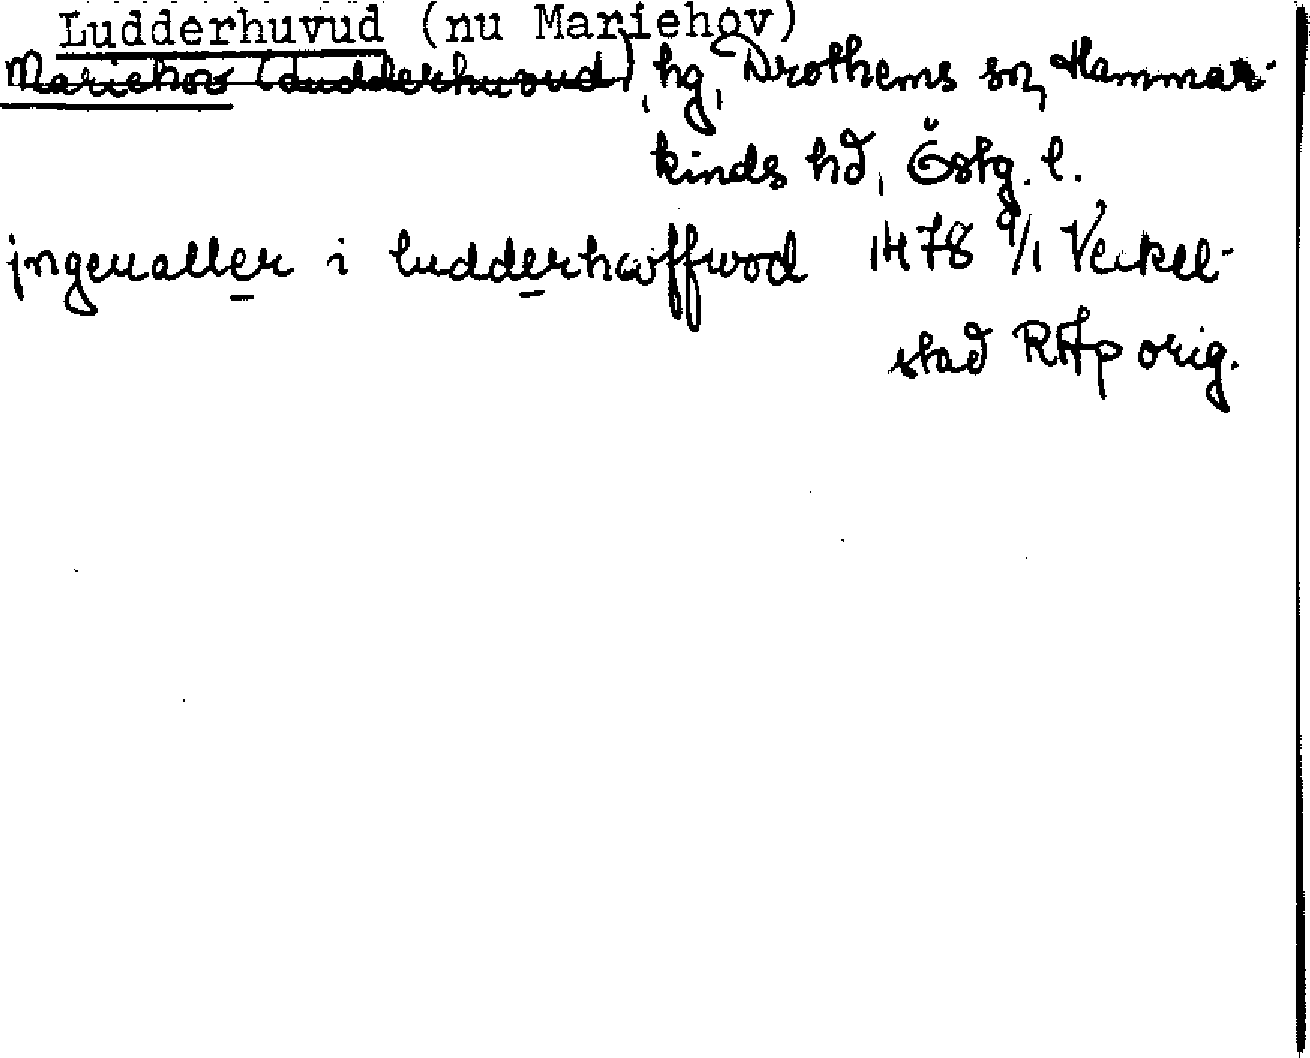 Ludderhuvud (nu Mariehov)
Mariehov (Ludderhuvud), hg, Drothems sn, Hammar-
kinds hd, Östg. l.
jngeualler i ludderhwffwod 1478 9/1 Veckel-
stad RAp orig.